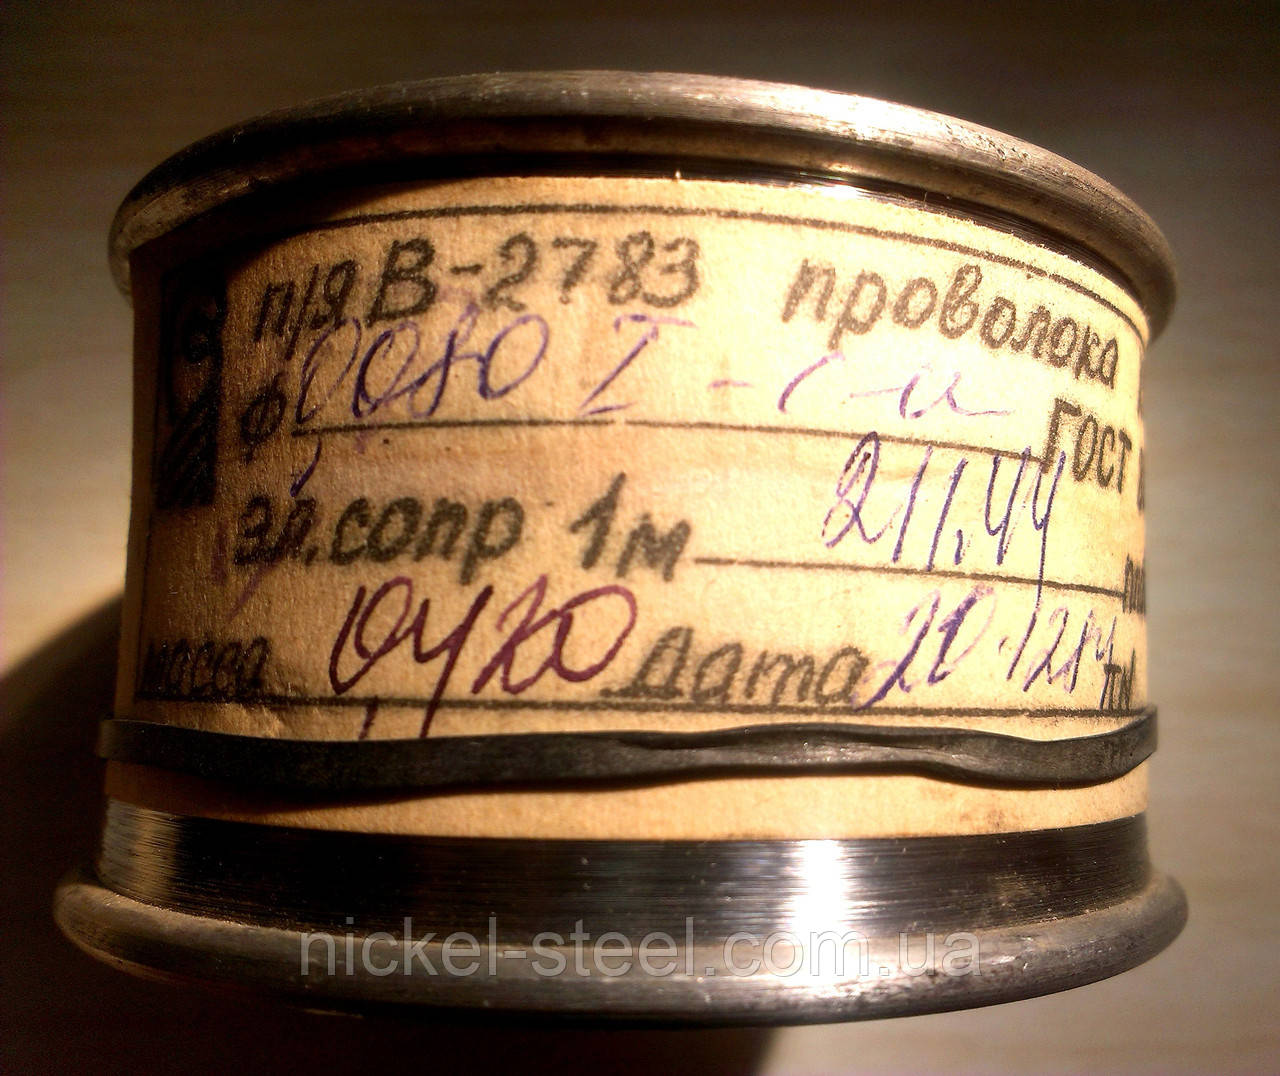 п/я В-2783 проволока
ф 0,080 I - ГОСТ
эл.сопр 1м 211,44
масса 0,420 Дата 20.1284
nickel-steel.com.ua